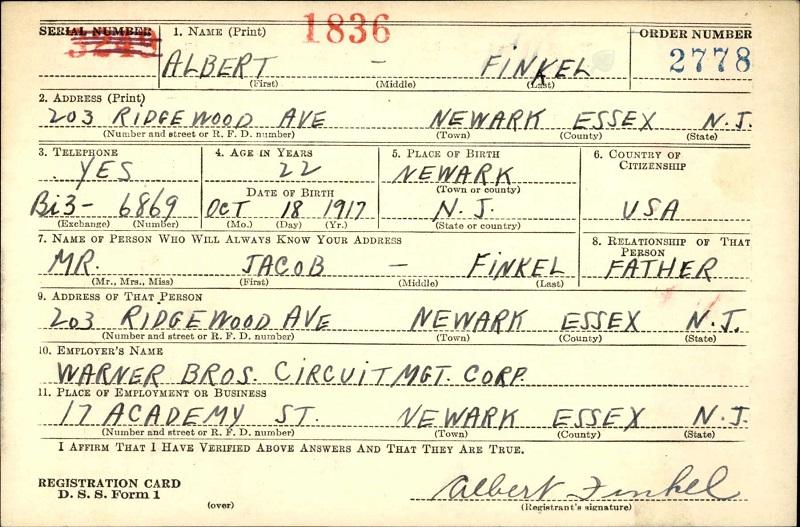 SERIAL NUMBER 1. NAME (Print) 1836 ORDER NUMBER
3249 ALBERT — FINKEL 2778
(First) (Middle) (Last)
2. ADDRESS (Print)
203 RIDGEWOOD AVE NEWARK ESSEX N.J.
(Number and street or R. F. D. number) (Town) (County) (State)
3. TELEPHONE 4. AGE IN YEARS 5. PLACE OF BIRTH 6. COUNTRY OF CITIZENSHIP
YES 22 NEWARK
DATE OF BIRTH (Town or county)
Bi3- 6869 OCT 18 1917 N.J. USA
(Exchange) (Number) (Mo.) (Day) (Yr.) (State or country)
7. NAME OF PERSON WHO WILL ALWAYS KNOW YOUR ADDRESS 8. RELATIONSHIP OF THAT PERSON
MR. JACOB — FINKEL FATHER
(Mr., Mrs., Miss) (First) (Middle) (Last)
9. ADDRESS OF THAT PERSON
203 RIDGEWOOD AVE NEWARK ESSEX N.J.
(Number and street or R. F. D. number) (Town) (County) (State)
10. EMPLOYER'S NAME
WARNER BROS. CIRCUIT MGT. CORP.
11. PLACE OF EMPLOYMENT OR BUSINESS
17 ACADEMY ST. NEWARK ESSEX N.J.
(Number and street or R. F. D. number) (Town) (County) (State)
I AFFIRM THAT I HAVE VERIFIED ABOVE ANSWERS AND THAT THEY ARE TRUE.
REGISTRATION CARD
D. S. S. Form 1 Albert Finkel
(over) (Registrant's signature)